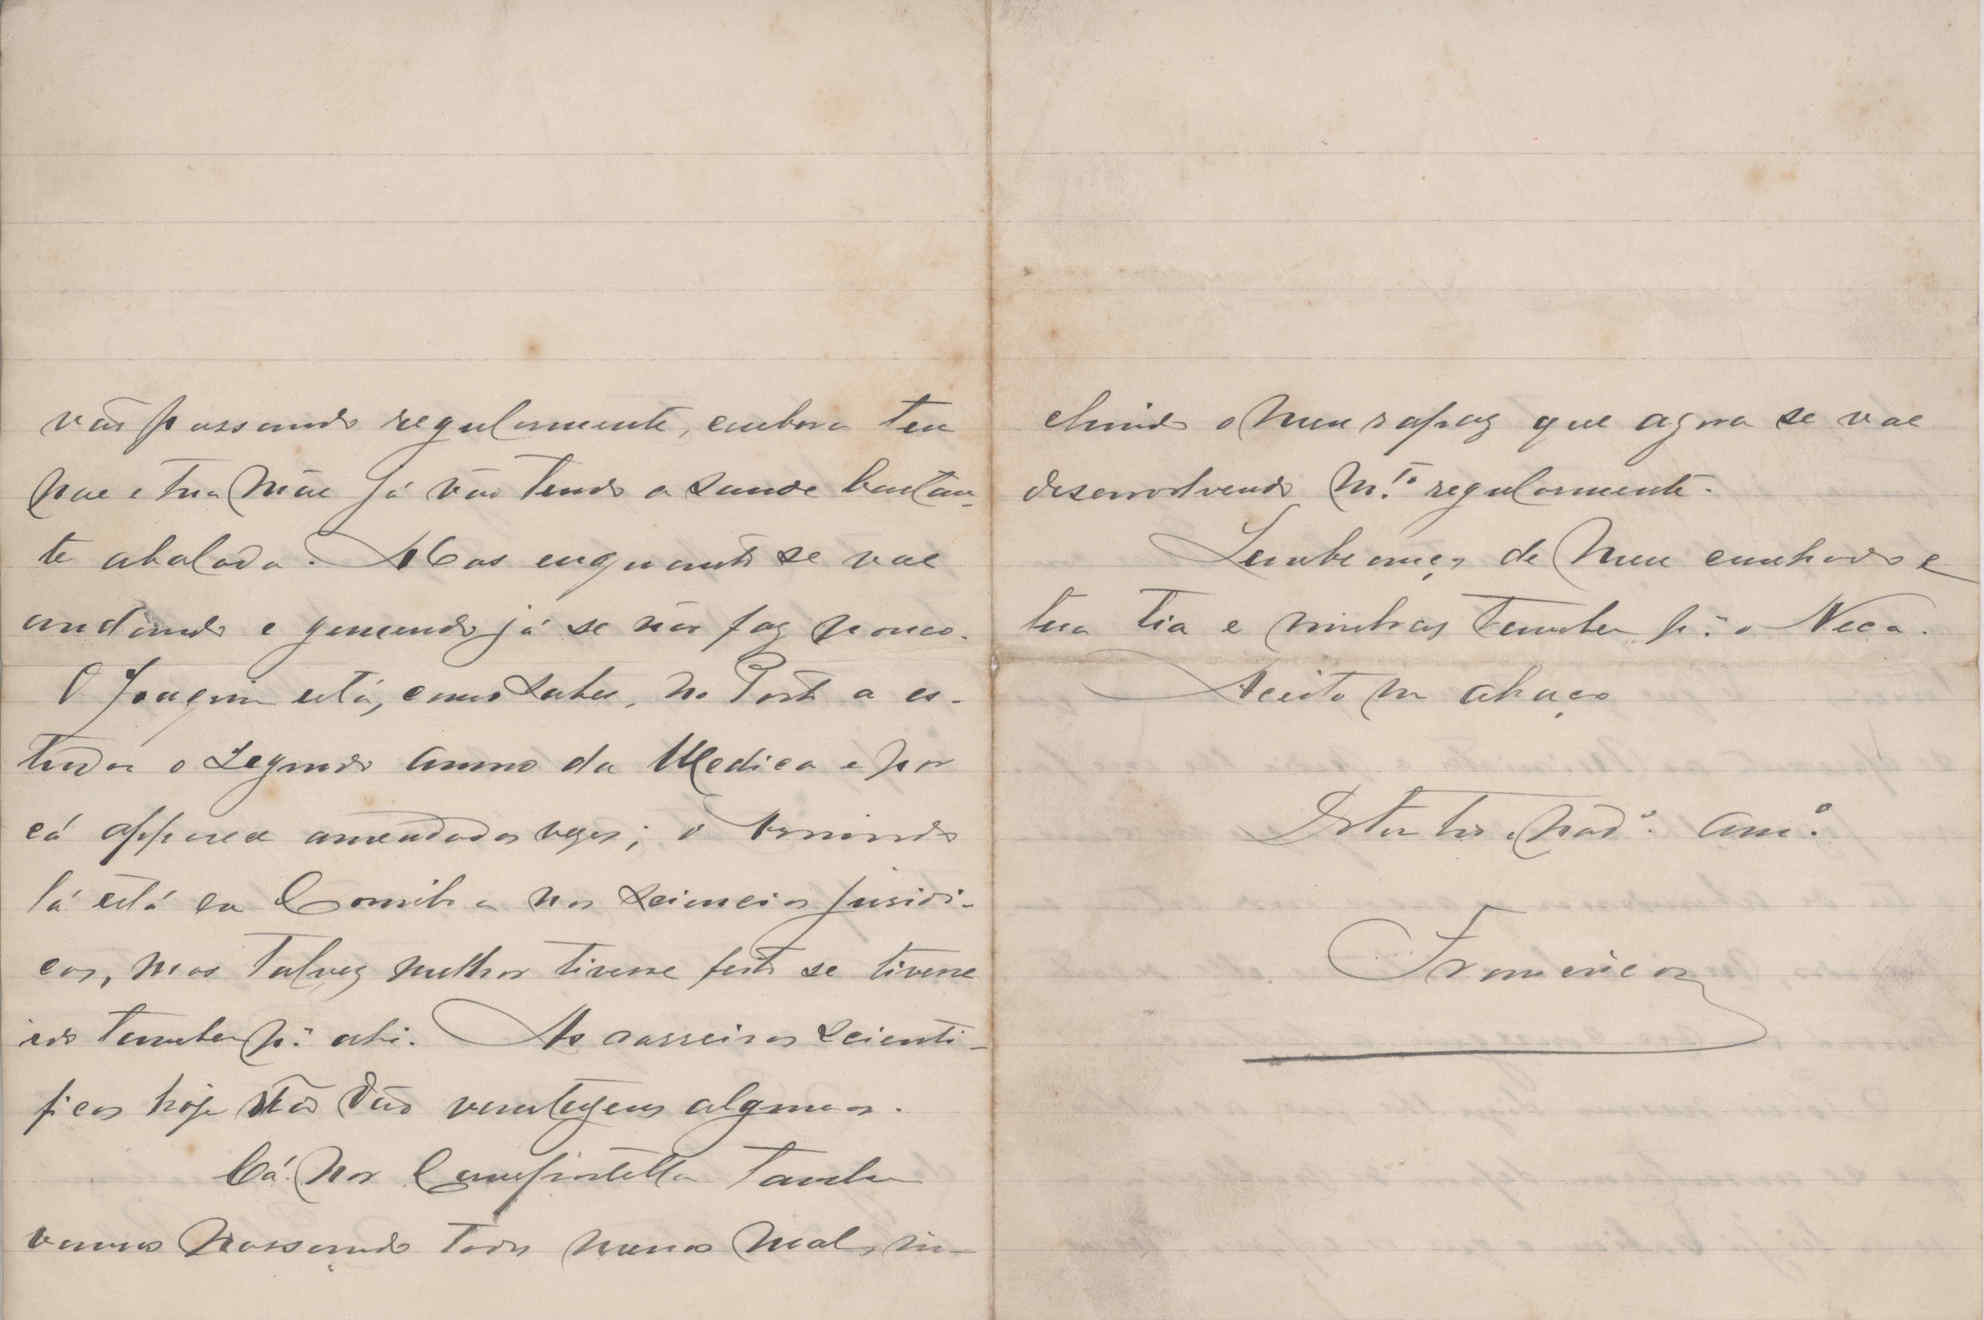 vão passando regularmente, embora teu
pae e tua mãe já vão tendo a saude bastan-
te abalada. Mas enquanto se vae
andando e gemendo já se não faz pouco.
O Joaquim está, como sabes, no Porto a es-
tudar o segundo anno da Medica e por
cá apparece amendadas vezes; o Armindo
lá está em Coimbra nas sciencias juridi-
cas, mas talvez melhor tivesse feito se tivesse
ido tambem p.ª ahi. As carreiras scienti-
ficas hoje não dão vantagens algumas.
Cá por Campostella tambem
vamos passando todos menos mal, in-
cluindo o meu rapaz que agora se vae
desenvolvendo m.to regularmente.
Lembranças de meu cunhado e
tua tia e minhas tambem p.ª o Neca.
Aceita um abraço
D'teu tio e pad.º am.º
Francisco